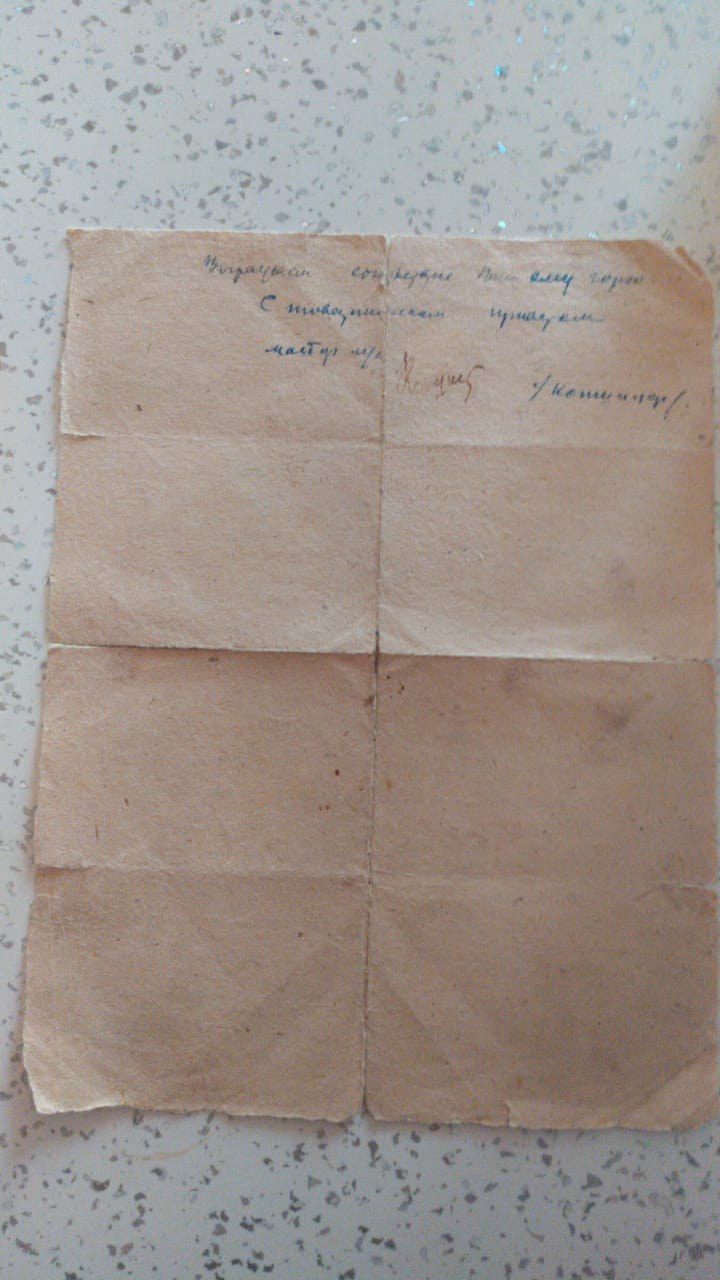 Выражаем сочувствие Вашему горю.
С товарищеским приветом
майор м/с /Кошицкар/.